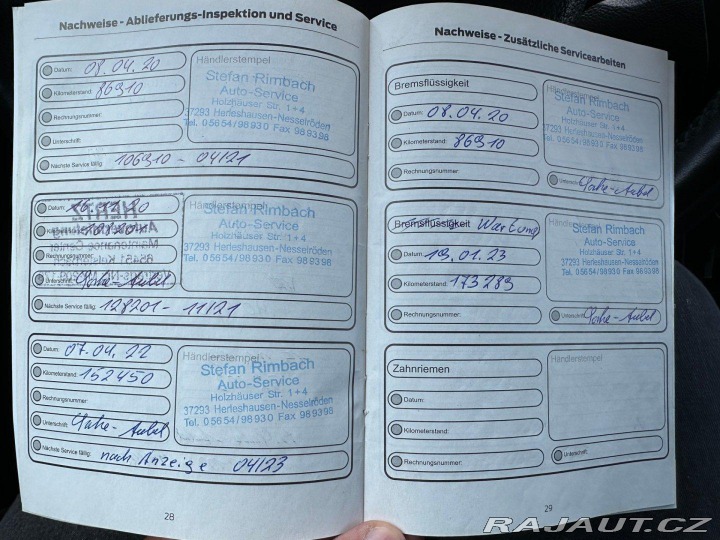 Nachweise - Ablieferungs-Inspektion und Service
Datum: 08.04.20
Kilometerstand: 86910
Rechnungsnummer:
Unterschrift:
Nächste Service fällig: 106910 - 04/21
Händlerstempel
Stefan Rimbach
Auto-Service
Holzhäuser Str. 1+4
37293 Herleshausen-Nesselröden
Tel. 05654/98930 Fax 989398
Datum:
Kilometerstand:
Rechnungsnummer:
Unterschrift:
Nächste Service fällig: 128201 - 11/21
Händlerstempel
Stefan Rimbach
Auto-Service
Holzhäuser Str. 1+4
37293 Herleshausen-Nesselröden
Tel. 05654/98930 Fax 989398
Datum: 07.04.22
Kilometerstand: 152450
Rechnungsnummer:
Unterschrift:
Nächste Service fällig: nach Anzeige 04/23
Händlerstempel
Stefan Rimbach
Auto-Service
Holzhäuser Str. 1+4
37293 Herleshausen-Nesselröden
Tel. 05654/98930 Fax 989398
28
Nachweise - Zusätzliche Servicearbeiten
Bremsflüssigkeit
Datum: 08.04.20
Kilometerstand: 86910
Rechnungsnummer:
Händlerstempel
Stefan Rimbach
Auto-Service
Holzhäuser Str. 1+4
37293 Herleshausen-Nesselröden
Tel. 05654/98930 Fax 989398
Unterschrift:
Bremsflüssigkeit Wartung
Datum: 19.01.23
Kilometerstand: 173289
Rechnungsnummer:
Händlerstempel
Stefan Rimbach
Auto-Service
Holzhäuser Str. 1+4
37293 Herleshausen-Nesselröden
Tel. 05654/98930 Fax 989398
Unterschrift:
Zahnriemen
Datum:
Kilometerstand:
Rechnungsnummer:
Händlerstempel
Unterschrift:
29
RAJAUT.CZ